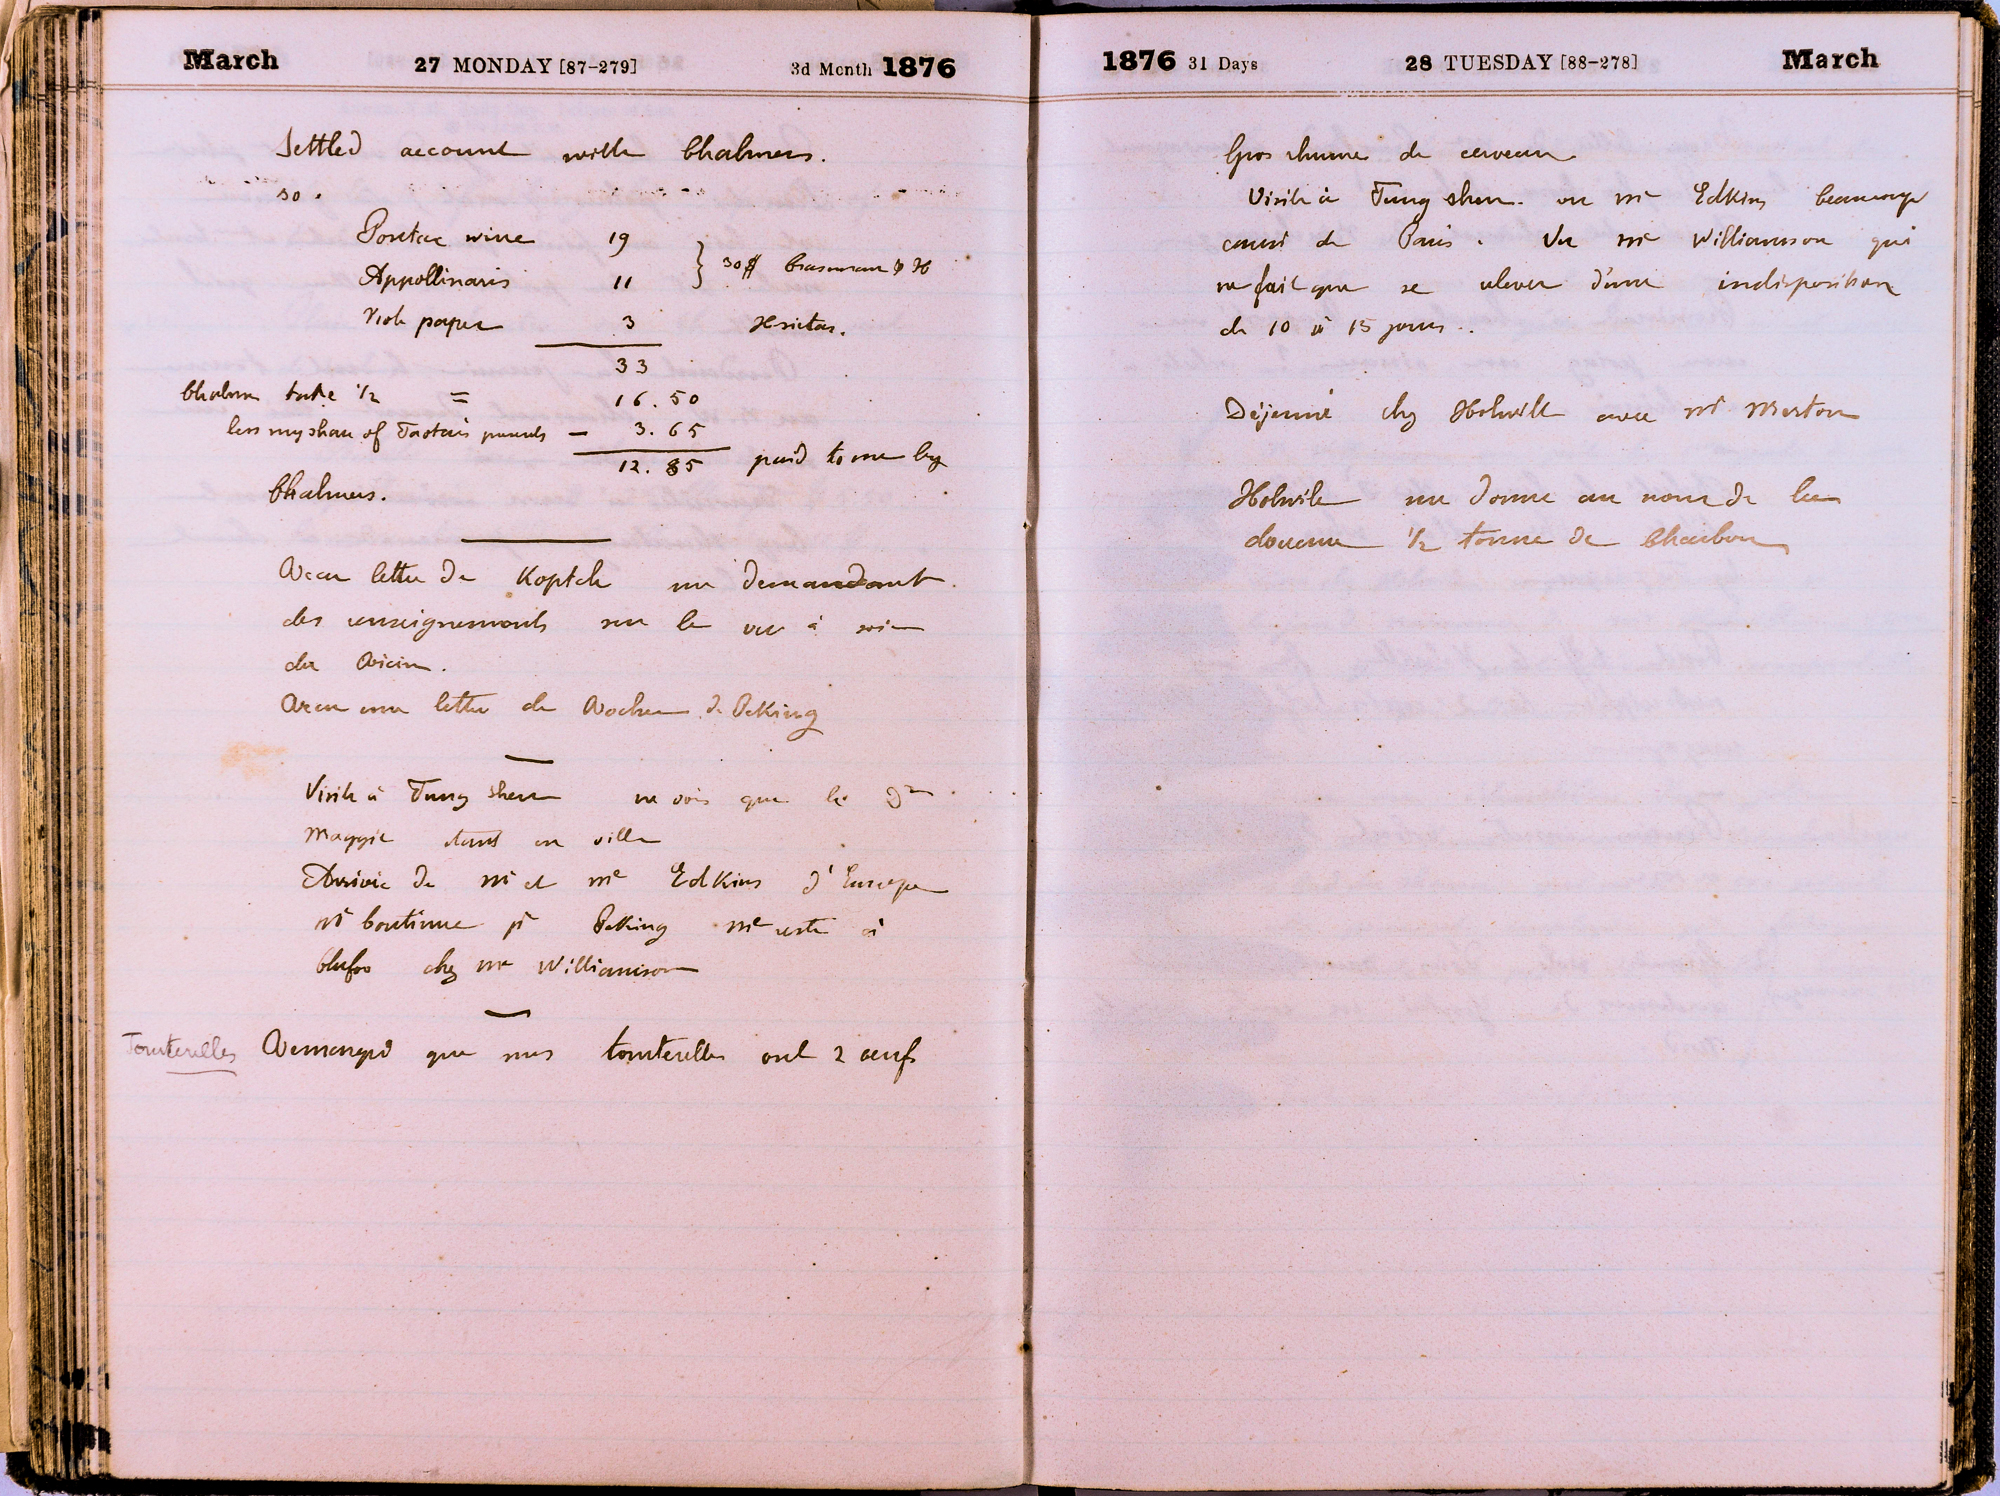 March 27 MONDAY [87-279] 3d Month 1876
Settled account with Chalmers.
so.
Pontac wine 19
Appollinaris 11 } 30$ Crasemann & H
Rich paper 3 Hsietai.
33
Chalmers take 1/2 = 16.50
less my share of Taotai's presents — 3.65
12.85 paid to me by
Chalmers.
Recu lettre de Koptch me demandant
des renseignements sur le ver à soie
du Ricin.
Recu une lettre de Rocher de Peking
Visite à Tung shen ne vois que le Dr
Maggie étant en ville
Arrivée de Mr et Me Edkins d'Europe
Mr continue pr Peking Me reste à
Chefoo chez Me Williamson
Tourterelles Remarqué que mes tourterelles ont 2 œufs
1876 31 Days 28 TUESDAY [88-278] March
Gros rhume de cerveau
Visite à Tung shen. vu Me Edkins beaucoup
causé de Paris. Vu Me Williamson qui
ne fait que se relever d'une indisposition
de 10 à 15 jours..
Déjeuné chez Holwill avec Mr Morton
Holwill me donne au nom de la
douane 1/2 tonne de Charbon